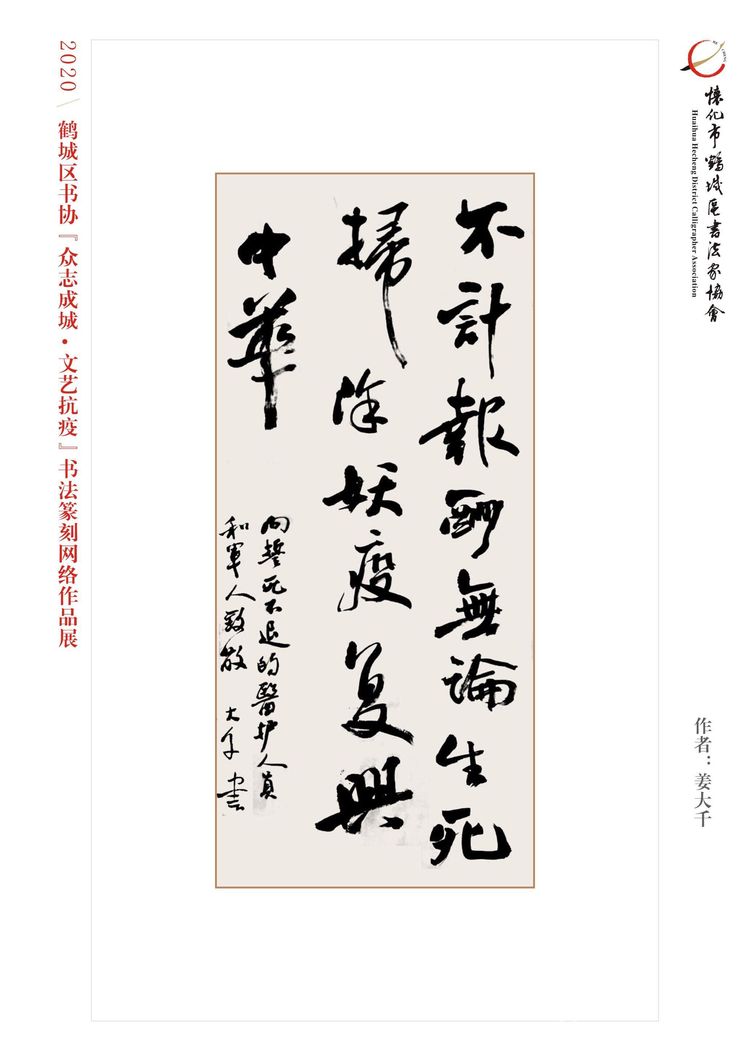 懷化市鶴城區書法家協會
Huaihua Hecheng District Calligrapher Association
不計報酬無論生死
掃除妖疫复興
中華
向誓死不退的醫护人員
和軍人致敬 大千書
作者：姜大千
2020 鹤城区书协『众志成城·文艺抗疫』书法篆刻网络作品展